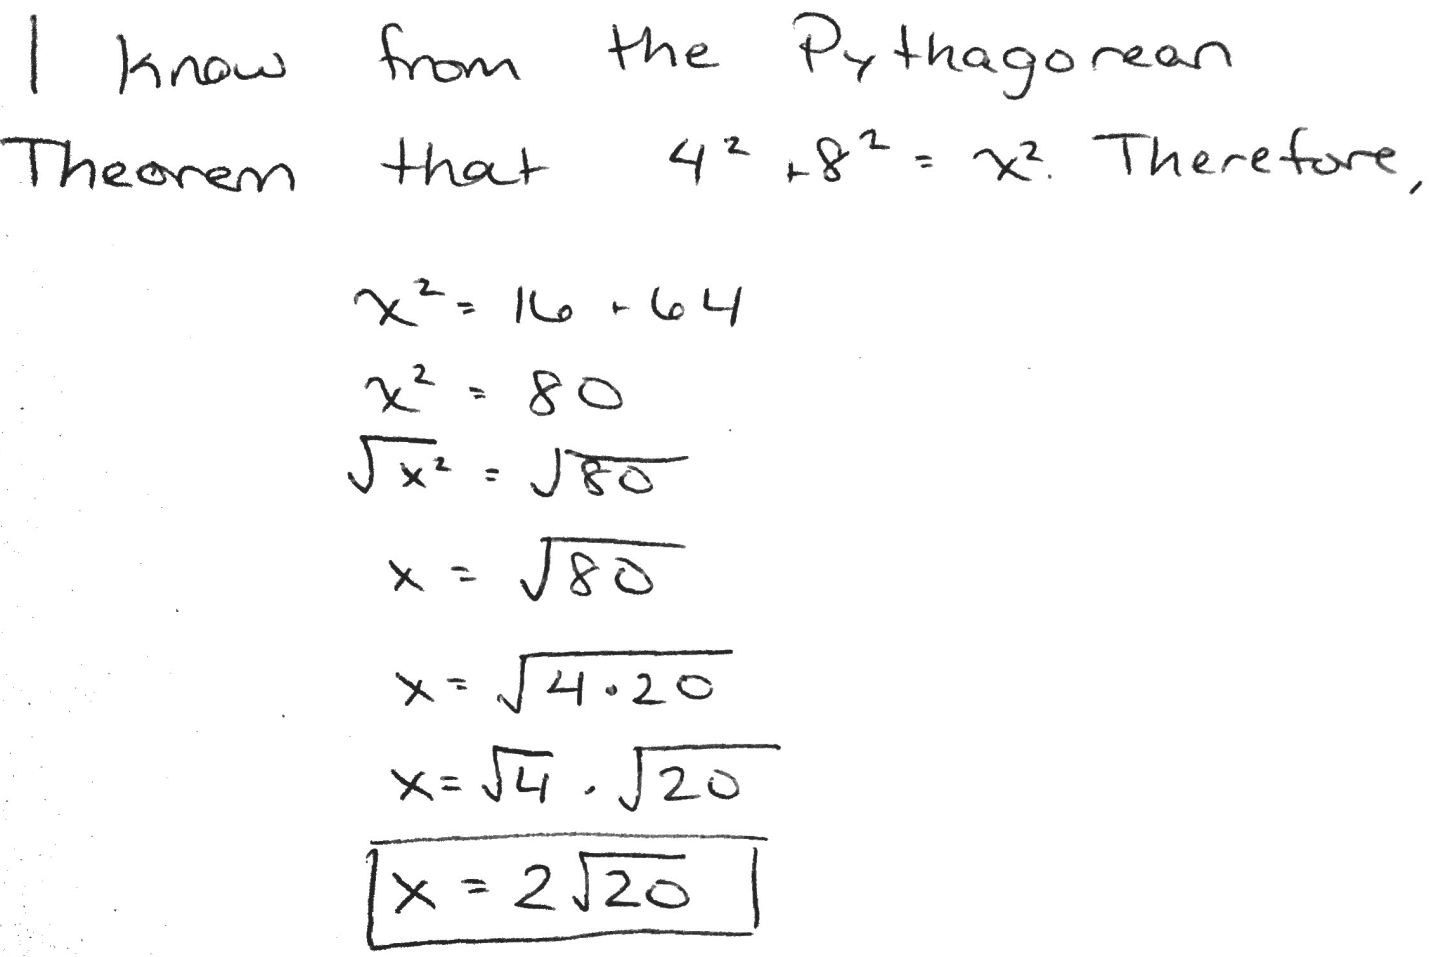 I know from the Pythagorean
Theorem that 4² + 8² = x². Therefore,
x² = 16 + 64
x² = 80
√x² = √80
x = √80
x = √4·20
x = √4 · √20
x = 2√20